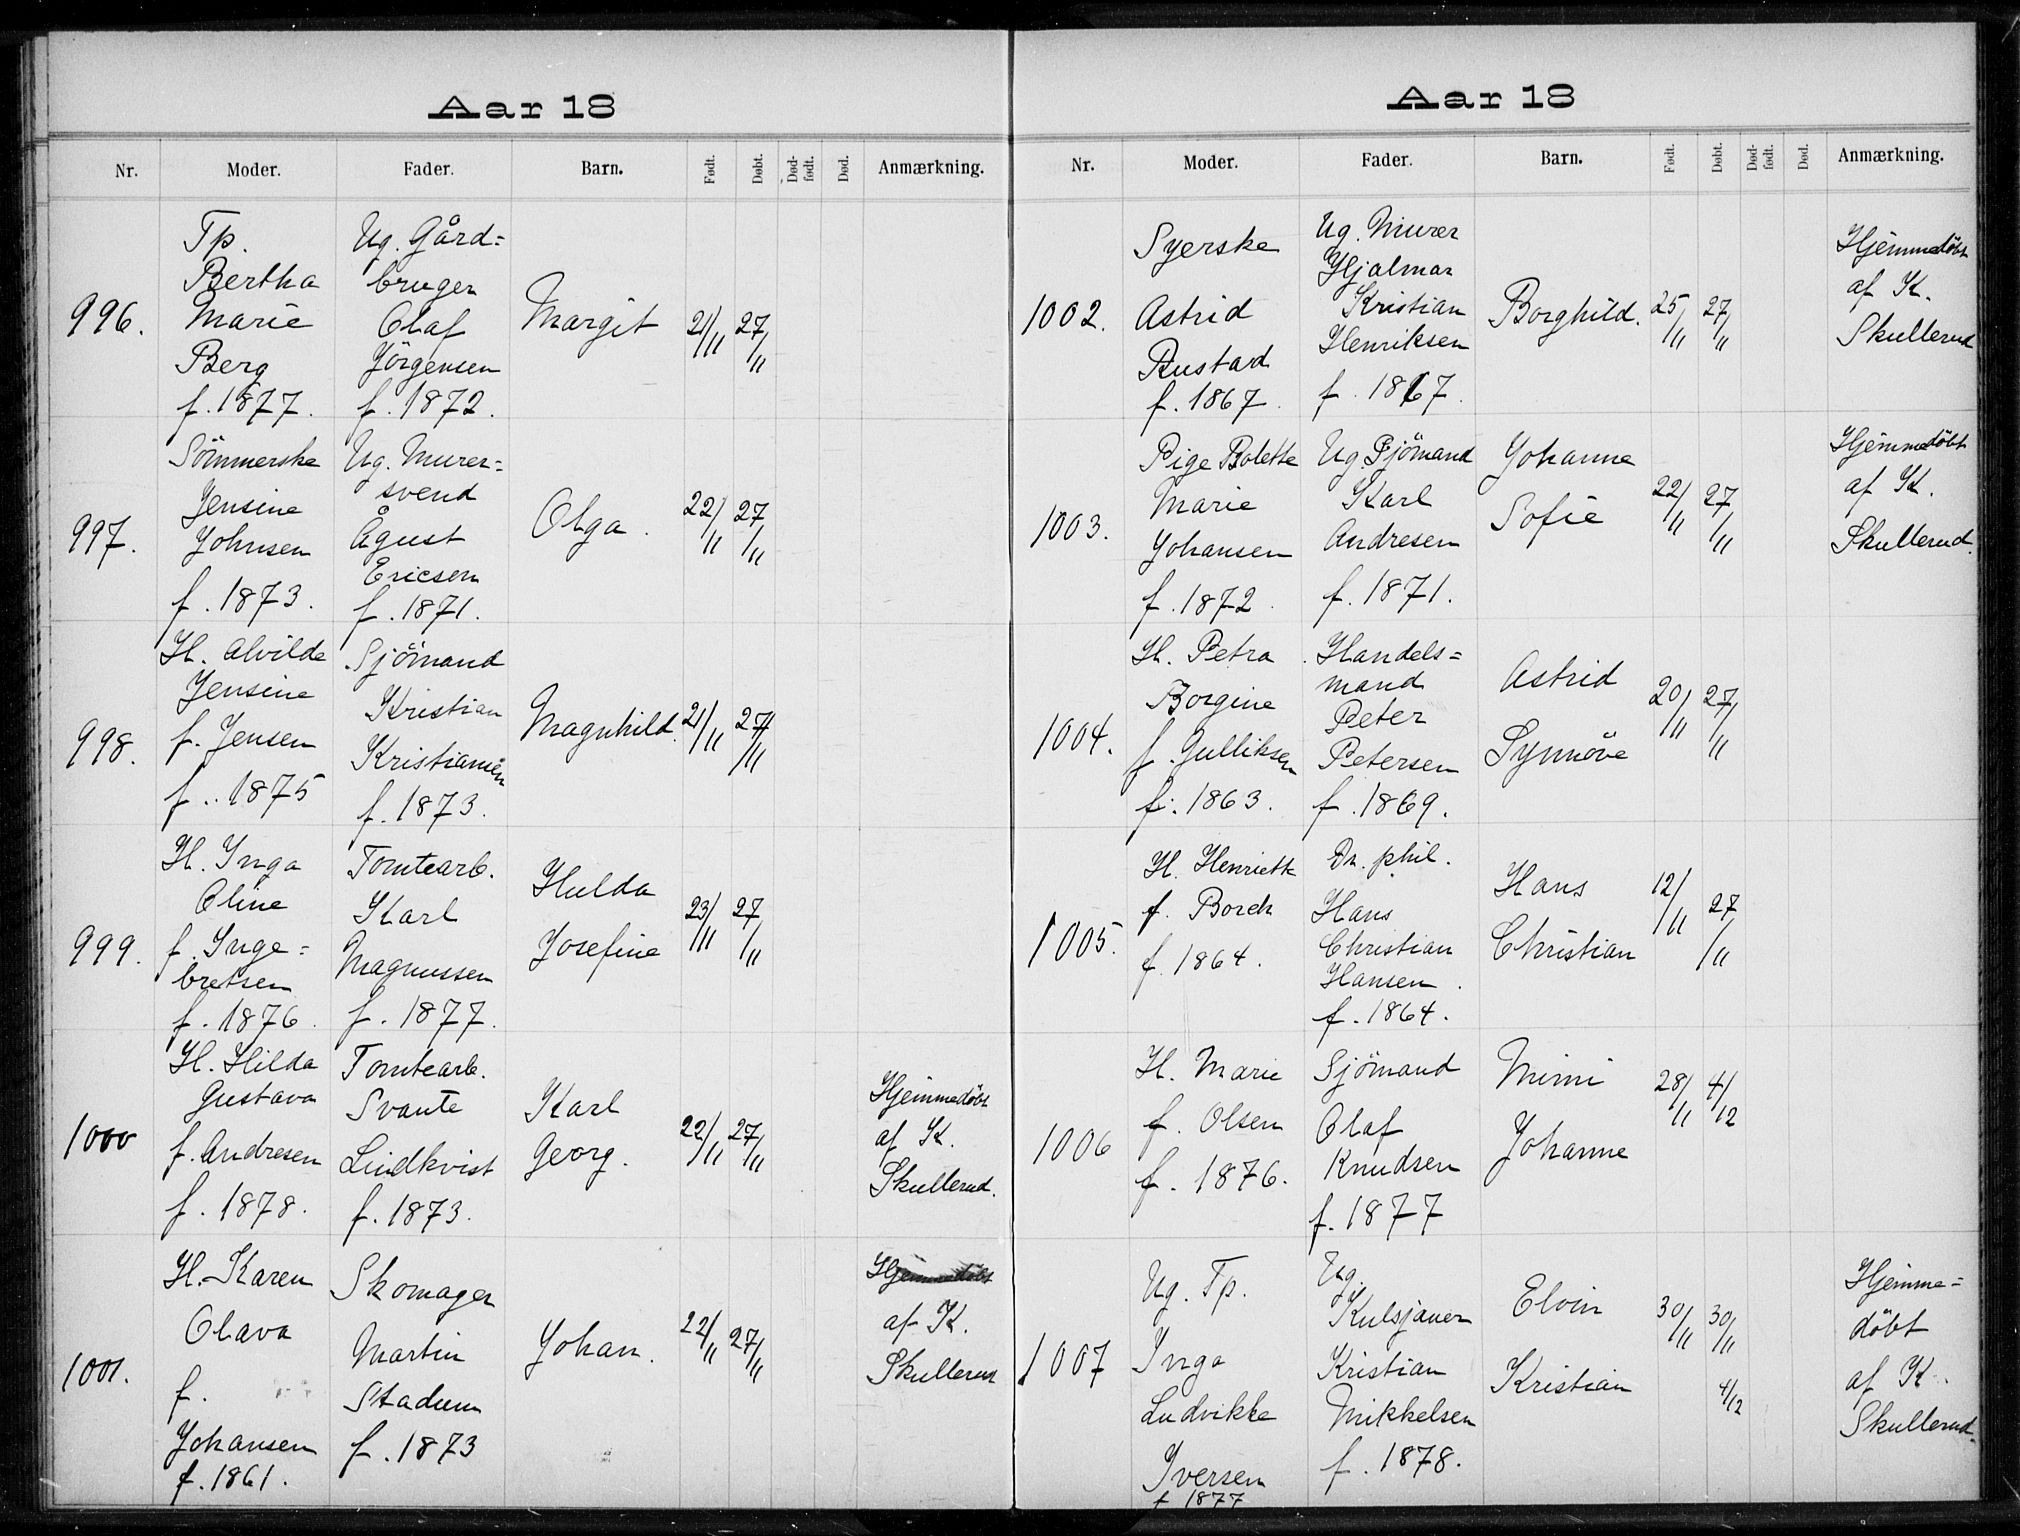 Aar 18
Nr. Moder. Fader. Barn. Født. Døbt. Død-født. Død. Anmærkning.
996.
Tp.
Bertha
Marie
Berg
f. 1877.
Ug. Gård=
bruger
Olaf
Jörgensen
f. 1872.
Margit
21/11
27/11
997.
Sömmerske
Jensine
Johnsen
f. 1873.
Ug. Murer=
svend
Ågust
Ericsen
f. 1871.
Olga.
22/11
27/11
998.
H. Alvilde
Jensine
f. Jensen
f. 1875
Sjömand
Kristian
Kristiansen
f. 1873.
Magnhild.
21/11
27/11
999.
H. Inga
Oline
f. Inge=
bretsen
f. 1876.
Tomtearb.
Karl
Magnussen
f. 1877.
Hulda
Josefine
23/11
27/11
1000
H. Hilda
Gustava
f. Andresen
f. 1878.
Tomtearb.
Svante
Lindkvist
f. 1873.
Karl
Georg.
22/11
27/11
Hjemmedöbt
af K.
Skullerud.
1001.
H. Karen
Olava
f.
Johansen
f. 1861.
Skomager
Martin
Stadum
f. 1873
Johan.
22/11
27/11
Hjemmedöbt
af K.
Skullerud
Aar 18
Nr. Moder. Fader. Barn. Født. Døbt. Død-født. Død. Anmærkning.
1002.
Syerske
Astrid
Rustad
f. 1867.
Ug. Murer
Hjalmar
Kristian
Henriksen
f. 1867.
Borghild.
25/11
27/11
Hjemmedöbt
af K.
Skullerud
1003.
Pige Bolette
Marie
Johansen
f. 1872.
Ug. Sjömand
Karl
Andresen
f. 1871.
Johanne
Sofie
22/11
27/11
Hjemmedöbt
af K.
Skullerud.
1004.
H. Petra
Borgine
f. Gulliksen
f. 1863.
Handels=
mand
Peter
Petersen
f. 1869.
Astrid
Synnöve
20/11
27/11
1005.
H. Henriette
f. Borch
f. 1864.
Dr. phil.
Hans
Christian
Hansen.
f. 1864.
Hans
Christian
12/11
27/11
1006
H. Marie
f. Olsen
f. 1876.
Sjömand
Olaf
Knudsen
f. 1877
Mimi
Johanne
28/11
4/12
1007
Ug. Tp.
Inga
Ludvikke
Iversen
f 1877
Ug.
Kulsjauer
Kristian
Mikkelsen
f. 1878.
Elvin
Kristian
30/11
30/11
4/12
Hjemme=
döbt
af K.
Skullerud.